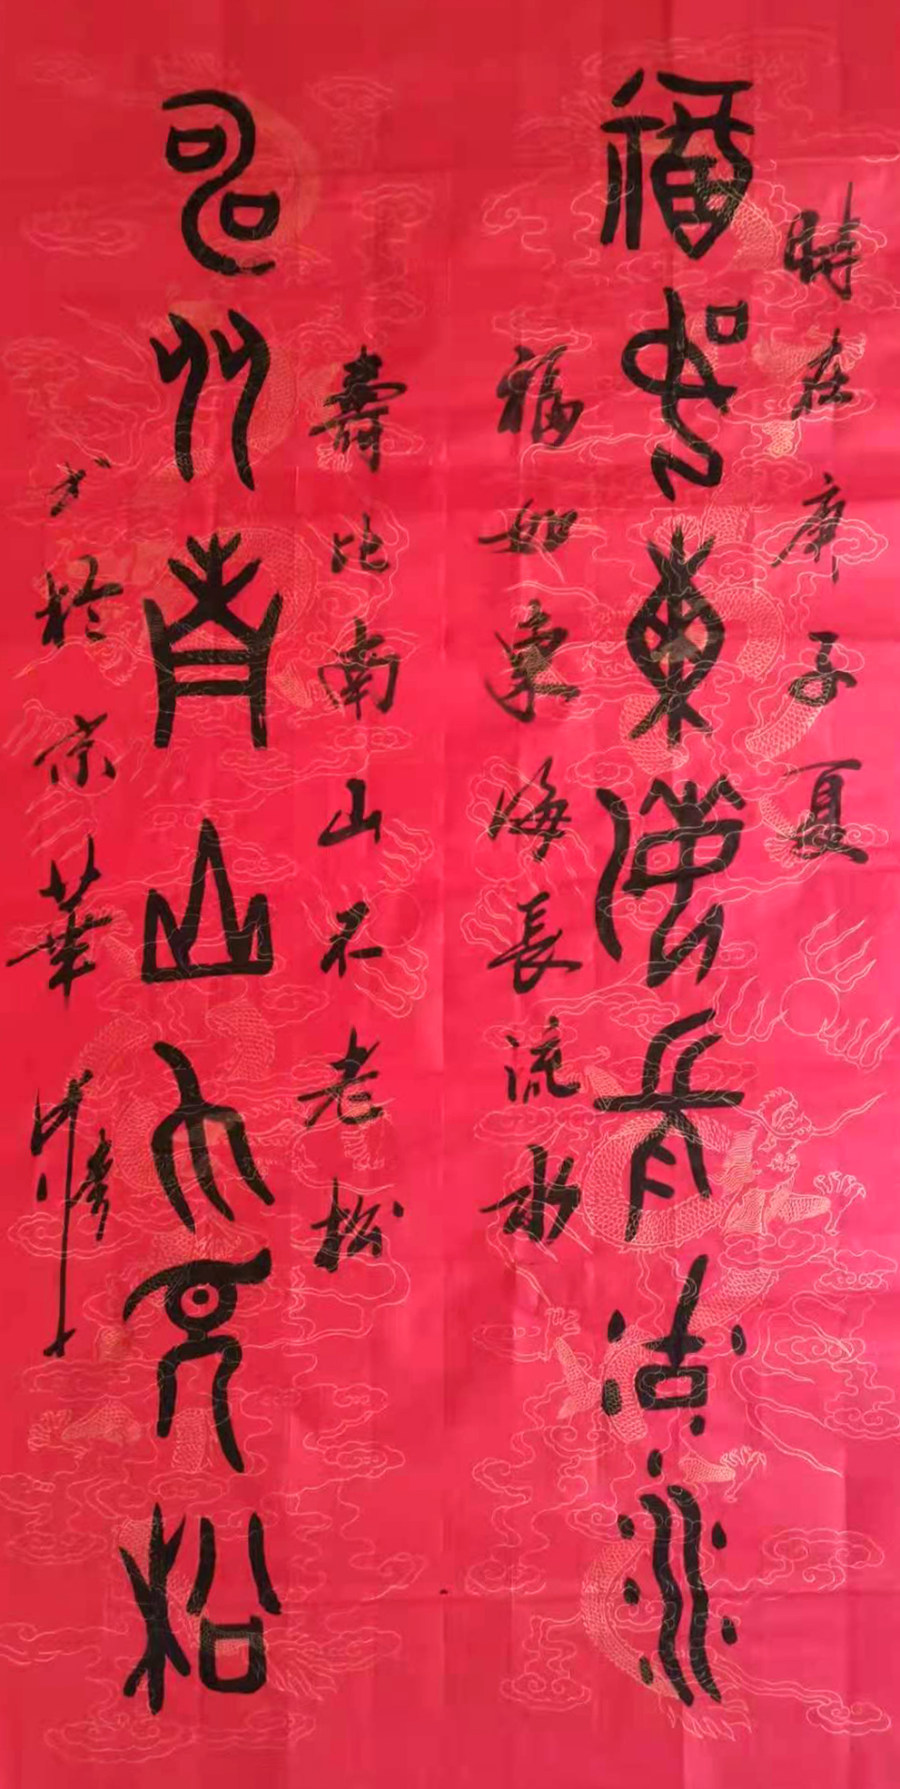 時在庚子夏
福如東海長流水
福如東海長流水
壽比南山不老松
壽比南山不老松
书於京華